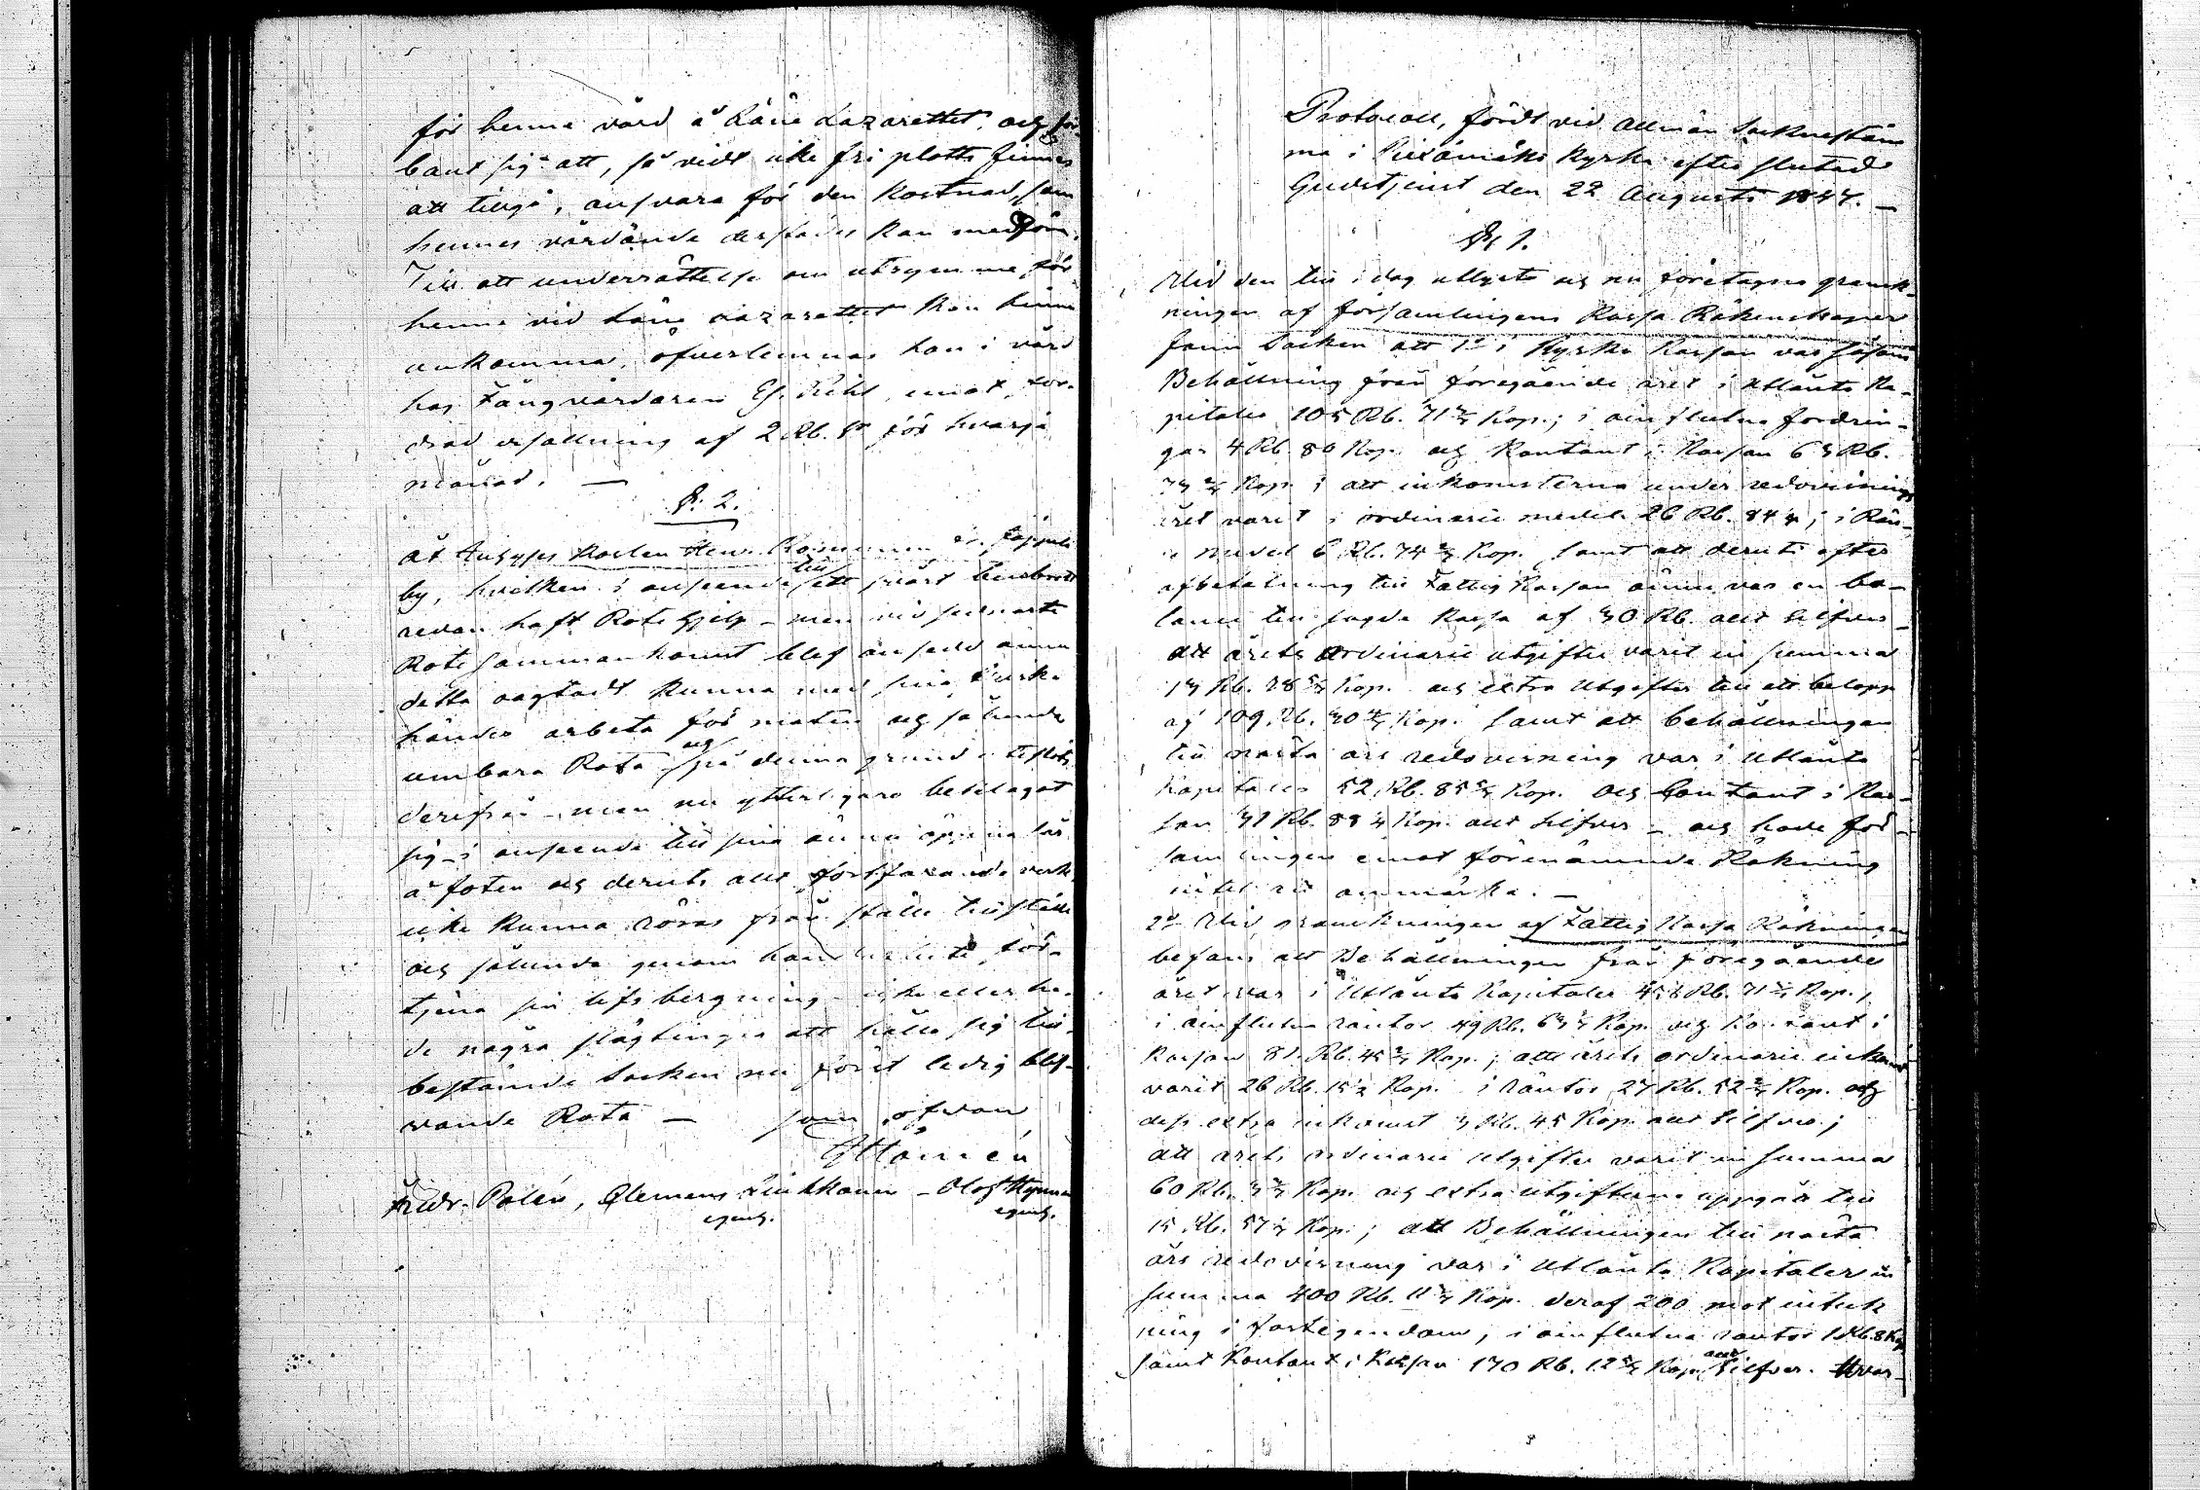 för henne vård å Läne Lazarettet, och för-
band sig att, så vidt icke fri plats finnes
att tillgå, ansvara för den kostnad, som
hennes vårdande derstädes kan medföra.
Till att underrättelse om utrymme för
henne vid Läne Lazarettet kan hinna
ankomma, öfverlemnas hon i vård
hos Fångvårdaren Es. emot for-
drad ersättning af 2 Rb. Sr för hvarje
månad. —
§. 2.
Åt Inhyses Karlen Hen.
by, hvilken i anseende till ett svårt benbrott
redan haft Rote hjelp - men vid sednaste
Rote sammankomst blef ansedd ännu
detta oagtadt kunna med sina friska
händer arbeta för maten och sålunda
umbära Rota och på denna grund
derifrån - men nu ytterligare beklagat
sig - i anseende till sina ännu öppna sår
å foten och deruti allt fortfarande verk,
icke kunna röras från ställe till ställe
och sålunda genom för-
tjena sin lifsbergning - icke eller ha-
de några slägtingar att hålla sig till,
bestämde Socken nu först ledig blif-
vande Rota — som ofvan
Fredr. Polén, Clemens — Olof
egenh. egenh.
Protocoll, fördt vid Allmän Sockneståm
ma i Kyrka efter slutad
Gudstjenst den 22 Augusti 1847. —
§ 1.
Vid den till i dag utlyste och nu företagne gransk-
ningen af församlingens Kassa Räkenskaper
fann Socken att 1o i Kyrko Kassan var såsom
Behållning från föregående året i utlånte Ka-
pitaler 105 Rb. 71 3/7 Kop.; i oinflutna fordrin-
gar 4 Rb. 80 Kop. och Kontant i Kassan 63 Rb.
Kop; att inkomsterna under redovisnings
året varit i ordinarie medel 26 Rb. 84; i Rän-
te medel 6 Rb. 74 Kop. samt att deruti efter
afbetalning till Fattig Kassan ännu var en ba-
lance till sagde Kassa af 30 Rb. allt Silfver -
att årets ordinarie utgifter varit in summa
13 Rb. 28 Kop. och extra utgifter till ett belopp
af 109 Rb. 30 Kop. samt att behållningen
till nästa års redovisning var i utlånte
Kapitaler 52 Rb. 85 Kop. och Contant i Kas-
san 31 Rb. 88 Kop. allt Silfver - och hade för-
samlingen emot förenämnde Räkning
intet att anmärka. —
2o Vid granskningen af Fattig Kassa Räkningen
befans att Behållningen från föregående
året var i Utlånte Kapitaler Rb. 71 Kop.,
i oinflutna räntor 49 Rb. Kop. och Kontant i
Kassan 81 Rb. 45 Kop.; att årets ordinarie inkomst
varit 26 Rb. 15 Kop. i räntor 27 Rb. 52 Kop. och
dess extra inkomst 3 Rb. 45 Kop. allt Silfver;
att årets ordinarie utgifter varit in summa
60 Rb. Kop. och extra utgifterna uppgått till
15 Rb. 57 Kop.; att Behållningen till nästa
års redovisning var i Utlånte Kapitaler in
summa 400 Rb. 11 Kop. deraf 200 mot inteck
ning i fastegendom, i oinflutna räntor 1 Rb. 8 Kop
samt Kontant i Kassan 170 Rb. 12 Kop. allt Silfver. Hvar-